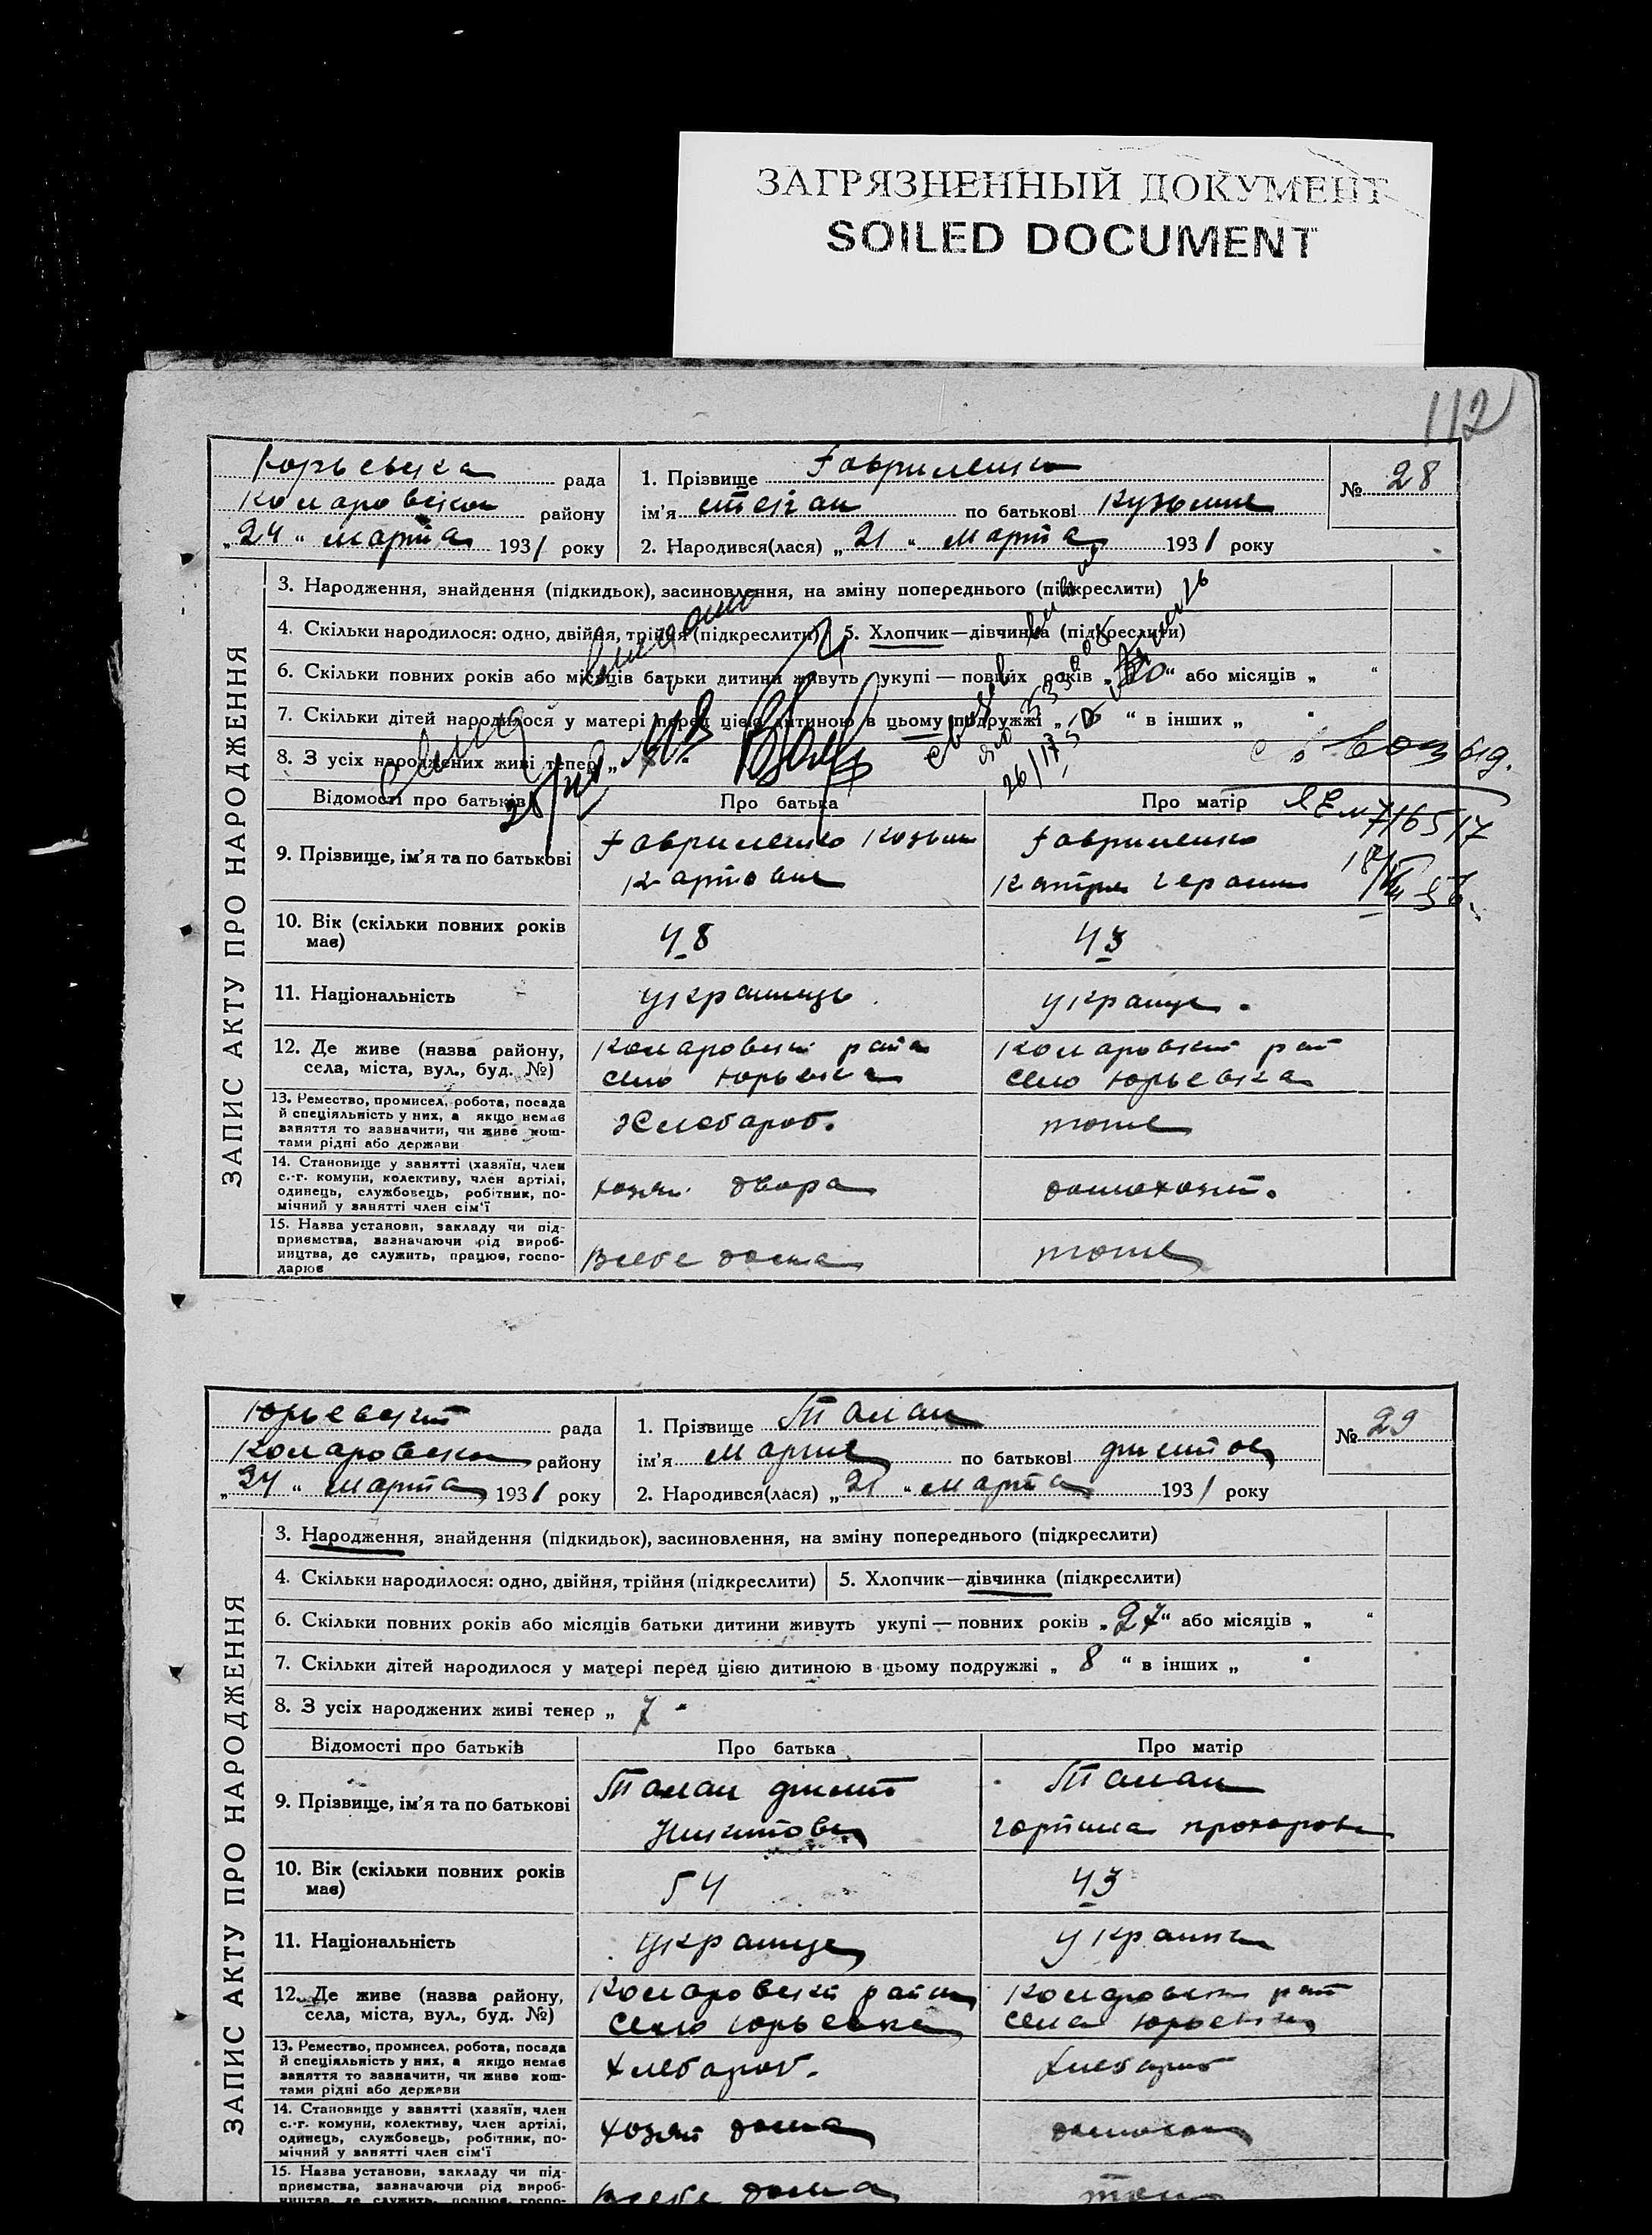 ЗАГРЯЗНЕННЫЙ ДОКУМЕНТ
SOILED DOCUMENT
112
ЗАПИС АКТУ ПРО НАРОДЖЕННЯ
Юрьевска рада
Комаровском району
„24“ марта 1931 року
1. Прізвище Гавриленко
ім'я Степан по батькові Кузьмич
2. Народився(лася) „21“ марта 1931 року
№ 28
3. Народження, знайдення (підкидьок), засиновлення, на зміну попереднього (підкреслити)
4. Скільки народилося: одно, двійня, трійня (підкреслити) 5. Хлопчик—дівчинка (підкреслити)
6. Скільки повних років або місяців батьки дитини живуть укупі — повних років „20“ або місяців „ “
7. Скільки дітей народилося у матері перед цією дитиною в цьому подружжі „ “ в інших „ “
8. З усіх народжених живі тепер „
Відомості про батьків Про батька Про матір
9. Прізвище, ім'я та по батькові
Гавриленко Козьма
Гавриленко
10. Вік (скільки повних років має) 48 43
11. Національність украинець украинц.
12. Де живе (назва району, села, міста, вул., буд. №)
Комаровски район Комаровский рай
село Юрьевка село Юрьевка
13. Ремество, промисел, робота, посада й спеціяльність у них, а якщо немає заняття то зазначити, чи живе коштами рідні або держави
Хлебароб. тоже
14. Становище у занятті (хазяїн, член с.-г. комуни, колективу, член артілі, одинець, службовець, робітник, помічний у занятті член сім'ї
хозяи двора домохозяй.
15. Назва установи, закладу чи підприємства, зазначаючи рід виробництва, де служить, працює, господарює
Всебе дома тоже
ЗАПИС АКТУ ПРО НАРОДЖЕННЯ
Юрьевский рада
Комаровском району
„24“ марта 1931 року
1. Прізвище Талан
ім'я Мария по батькові Дмитов
2. Народився(лася) „21“ марта 1931 року
№ 29
3. Народження, знайдення (підкидьок), засиновлення, на зміну попереднього (підкреслити)
4. Скільки народилося: одно, двійня, трійня (підкреслити) 5. Хлопчик—дівчинка (підкреслити)
6. Скільки повних років або місяців батьки дитини живуть укупі — повних років „27“ або місяців „ “
7. Скільки дітей народилося у матері перед цією дитиною в цьому подружжі „ 8 “ в інших „ “
8. З усіх народжених живі тепер „ 7 “
Відомості про батьків Про батька Про матір
9. Прізвище, ім'я та по батькові
Талан Дмит Талан
Никитович прохоровн
10. Вік (скільки повних років має) 54 43
11. Національність украинец украинка
12. Де живе (назва району, села, міста, вул., буд. №)
Комаровский район Комаровски рай
село Юрьевка села Юрьевка
13. Ремество, промисел, робота, посада й спеціяльність у них, а якщо немає заняття то зазначити, чи живе коштами рідні або держави
хлебароб. хлебароб
14. Становище у занятті (хазяїн, член с.-г. комуни, колективу, член артілі, одинець, службовець, робітник, помічний у занятті член сім'ї
хозяй дома
15. Назва установи, закладу чи підприємства, зазначаючи рід виробництва, де служить, працює, госпо-
Всебе дома тоже